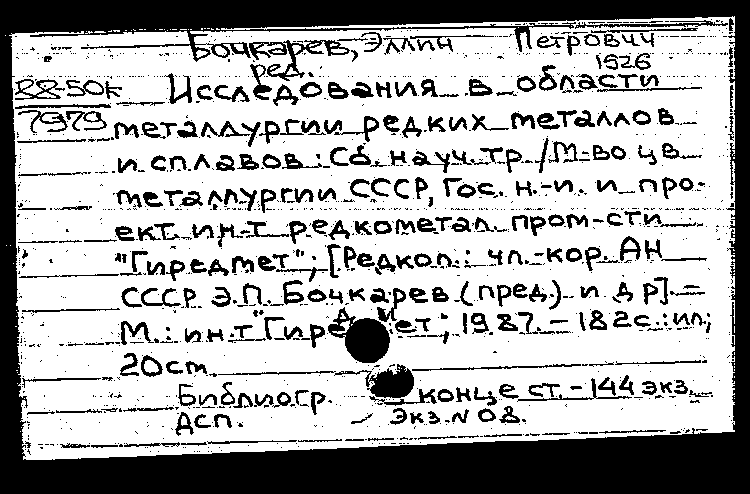 Бочкарев, Эллин Петрович
ред. 1926
88-50к Исследования в области
7979 металлургии редких металлов
и сплавов : Сб. науч. тр. / М-во цв.
металлургии СССР, Гос. н.-и. и про-
ект. ин-т редкометал. пром-сти
"Гиредмет"; [Редкол.: чл.-кор. АН
СССР Э.П. Бочкарев (пред.) и др]. -
М.: ин-т "Гиредмет", 1987. - 182с.: ил;
20 cm.
Библиогр. конце ст. - 144 экз.
ДСП. - Экз. N 08.